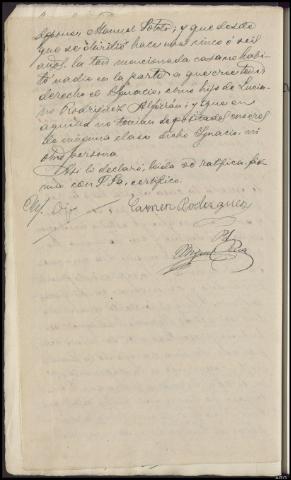 esposo, Manuel Sotelo; y que desde
que se dividió hace unos cinco ó seis
años, la tan mencionada casa no habi-
tó nadie en la parte a que creo tener
derecho el Ignacio, como hijo de Lucia-
no Rodriguez; y que en
aquella no tenian depositados enseres
de ninguna clase dicho Ignacio, ni
otra persona.
Asi lo declaró, leida se ratifica, fir-
ma con S.Sa, certifico.
Carmen Rodriguez
Miguel